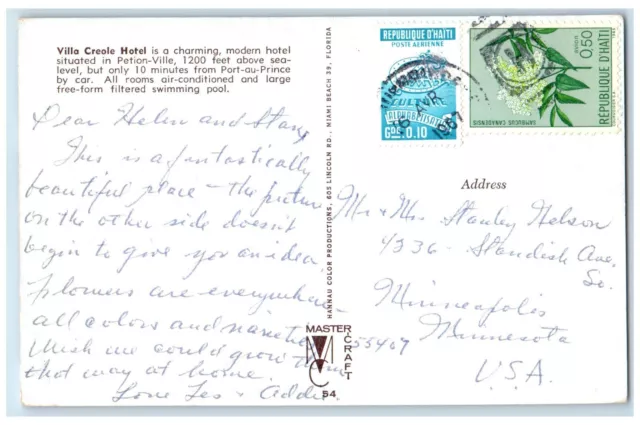 Villa Creole Hotel is a charming, modern hotel
situated in Petion-Ville, 1200 feet above sea-
level, but only 10 minutes from Port-au-Prince
by car. All rooms air-conditioned and large
free-form filtered swimming pool.
Dear Helen and Stan,
This is a fantastically
beautiful place – the picture
on the other side doesn't
begin to give you an idea.
Flowers are everywhere –
all colors and varieties
Wish we could grow them
that way at home.
Love Les & Addie
HANNAU COLOR PRODUCTIONS, 605 LINCOLN RD., MIAMI BEACH 39, FLORIDA
MASTER
CRAFT
54
REPUBLIQUE D'HAITI
POSTE AERIENNE
CULTURE
ALPHABETISATION
Gde 0.10
1967
0,50
GOURDE
REPUBLIQUE D'HAITI
SAMBUCUS CANADENSIS
Address
Mr & Mrs Stanley Nelson
4336 - Standish Ave.
So.
Minneapolis
55407 Minnesota
U.S.A.